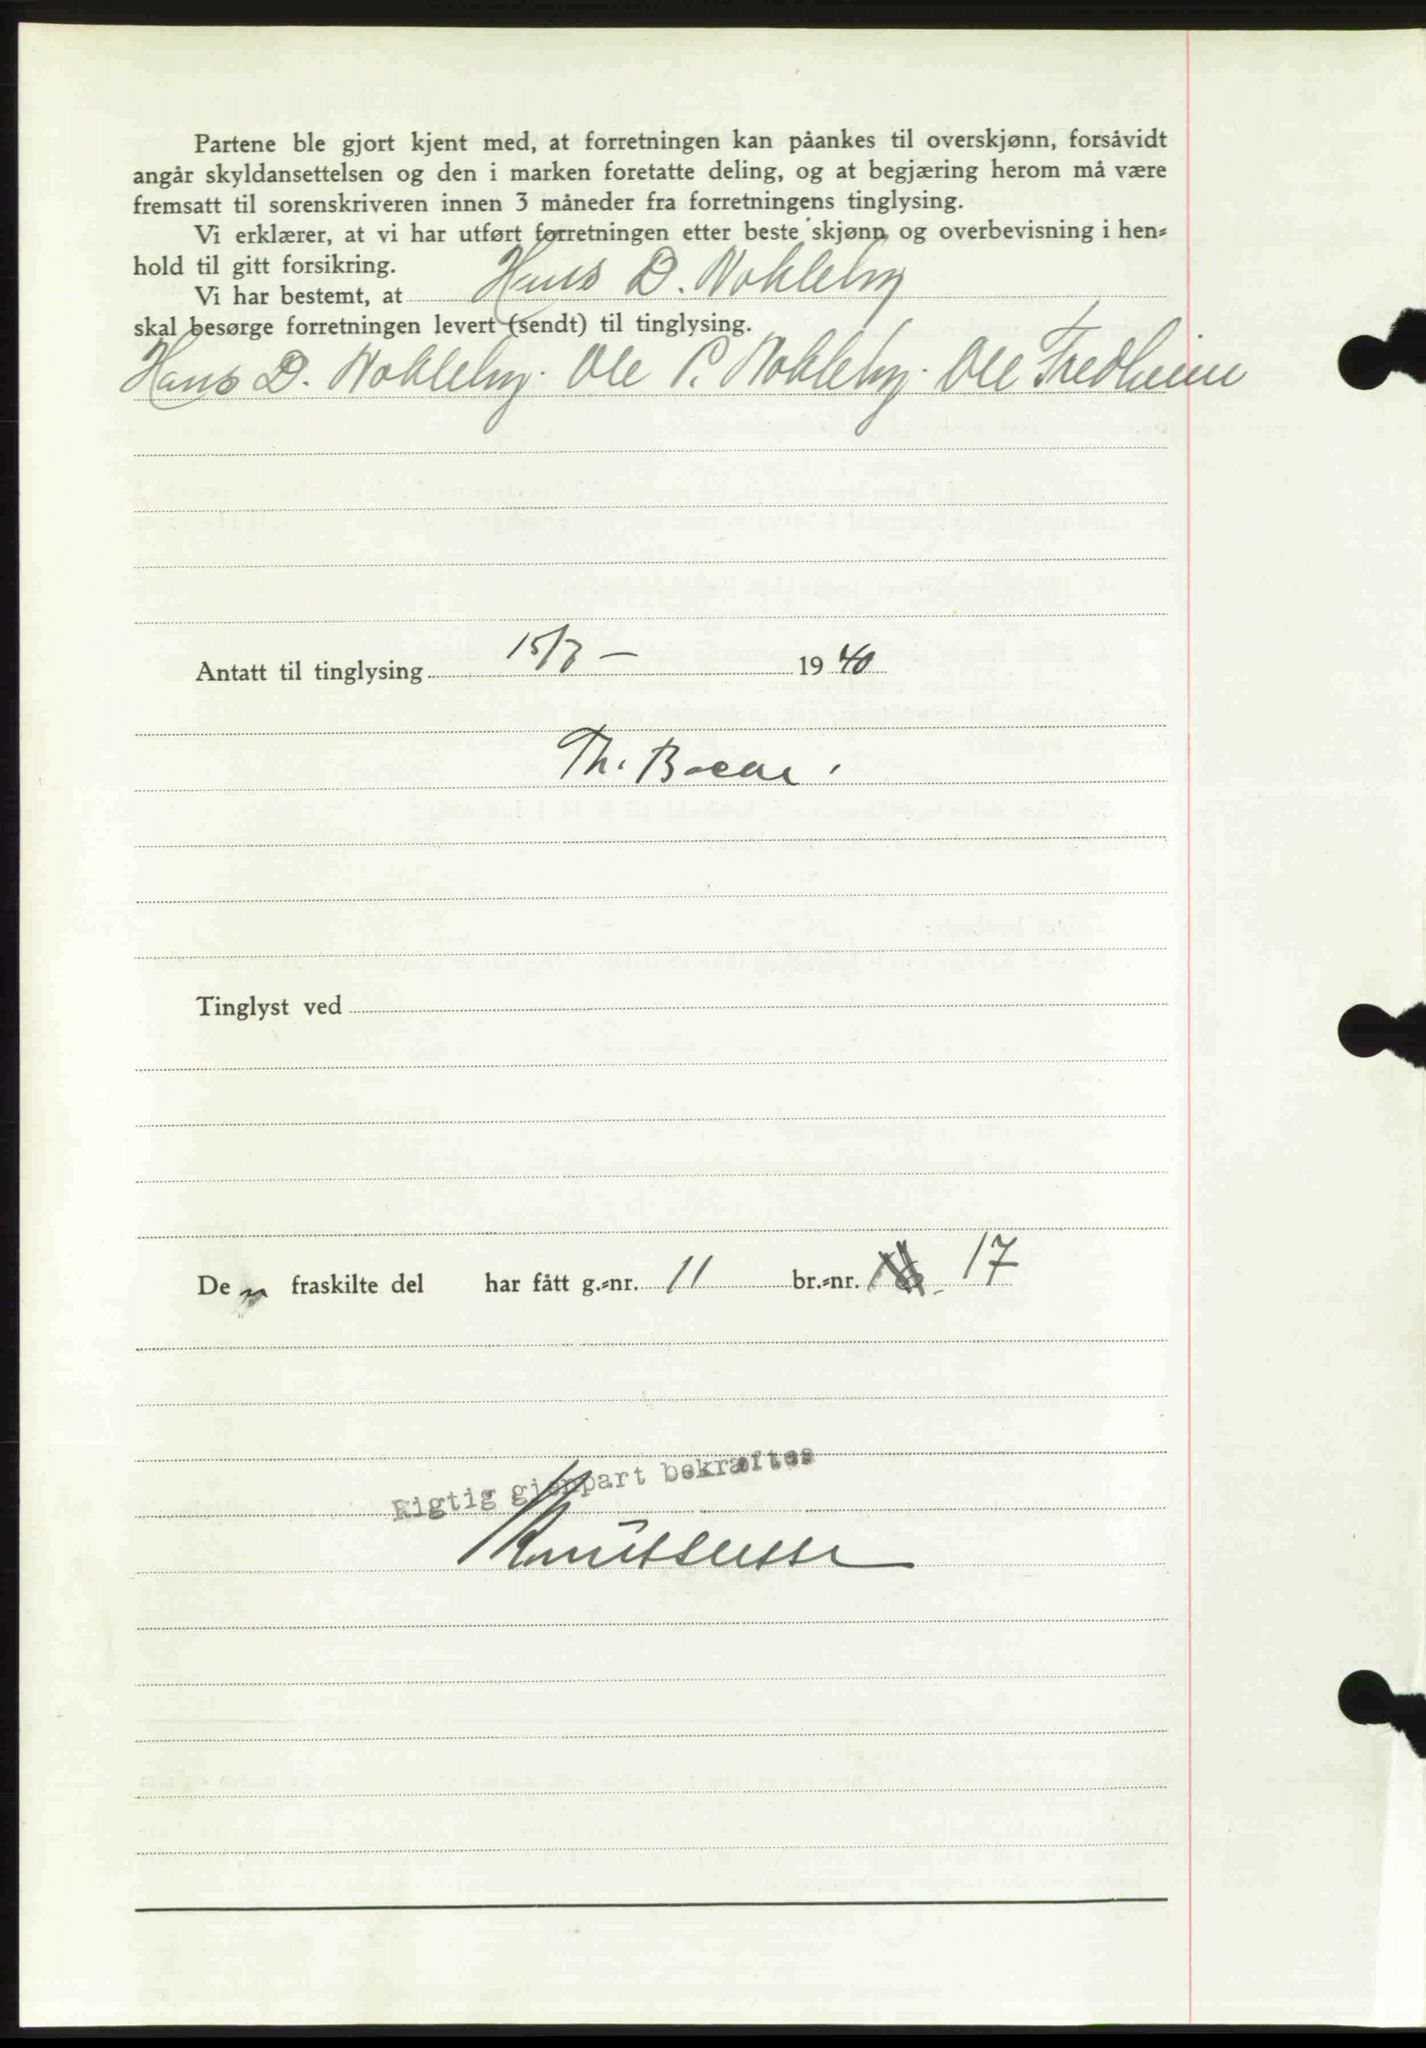 Partene ble gjort kjent med, at forretningen kan påankes til overskjønn, forsåvidt
angår skyldansettelsen og den i marken foretatte deling, og at begjæring herom må være
fremsatt til sorenskriveren innen 3 måneder fra forretningens tinglysing.
Vi erklærer, at vi har utført forretningen etter beste skjønn og overbevisning i hen-
hold til gitt forsikring.
Vi har bestemt, at Hans D. Nokleby
skal besørge forretningen levert (sendt) til tinglysing.
Hans D. Nokleby. Ole P. Nokleby. Ole Fredheim
Antatt til tinglysing 15/7 — 1940
Th. 
Tinglyst ved
Den fraskilte del har fått g.-nr. 11 br.-nr. 17
Rigtig gjenpart bekræftes